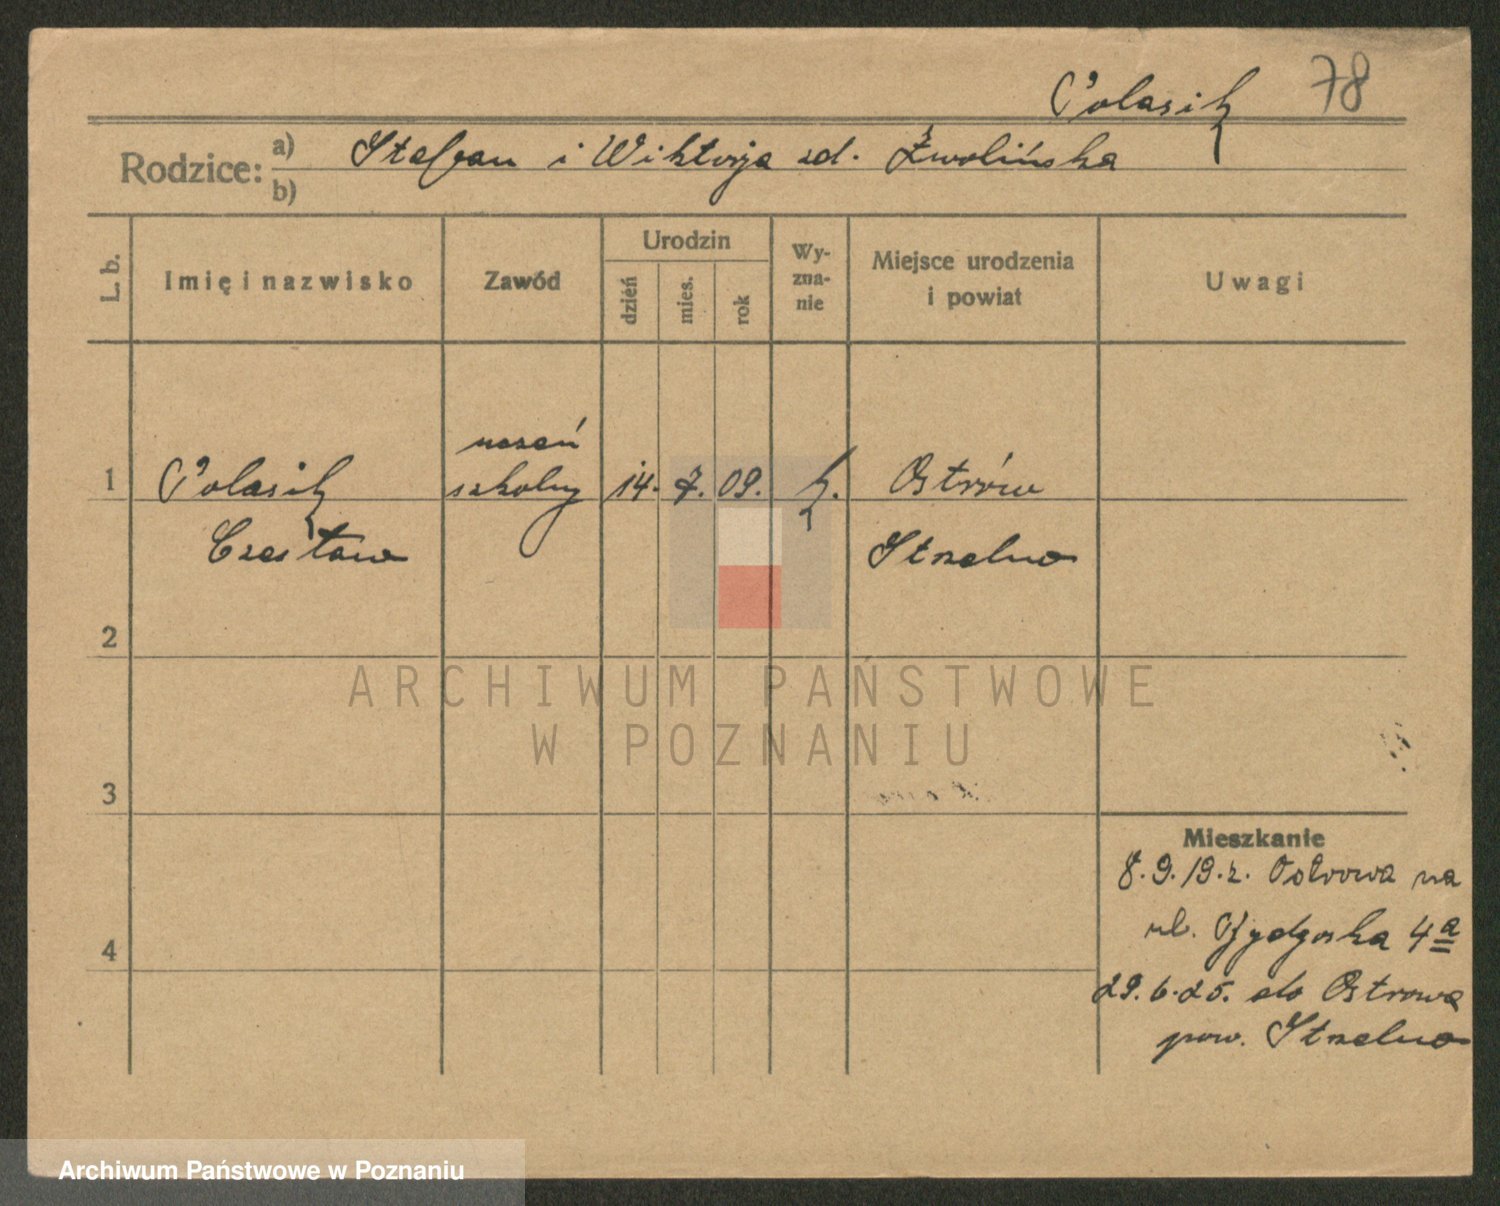 Polasik 78
Rodzice: a) Stefan i Wiktorja zd. Żwolińska
b)
L. b. Imię i nazwisko Zawód Urodzin dzień mies. rok Wy-zna-nie Miejsce urodzenia i powiat Uwagi
uczeń
1 Polasik szkolny 14. 7. 09. k. Ostrów
Czesław Strzelno
2
ARCHIWUM PAŃSTWOWE
W POZNANIU
3
Mieszkanie
8.9.19. z Ostrowa na
ul. Bydgoska 4a
4
29.6.25. do Ostrowa
pow. Strzelno
Archiwum Państwowe w Poznaniu